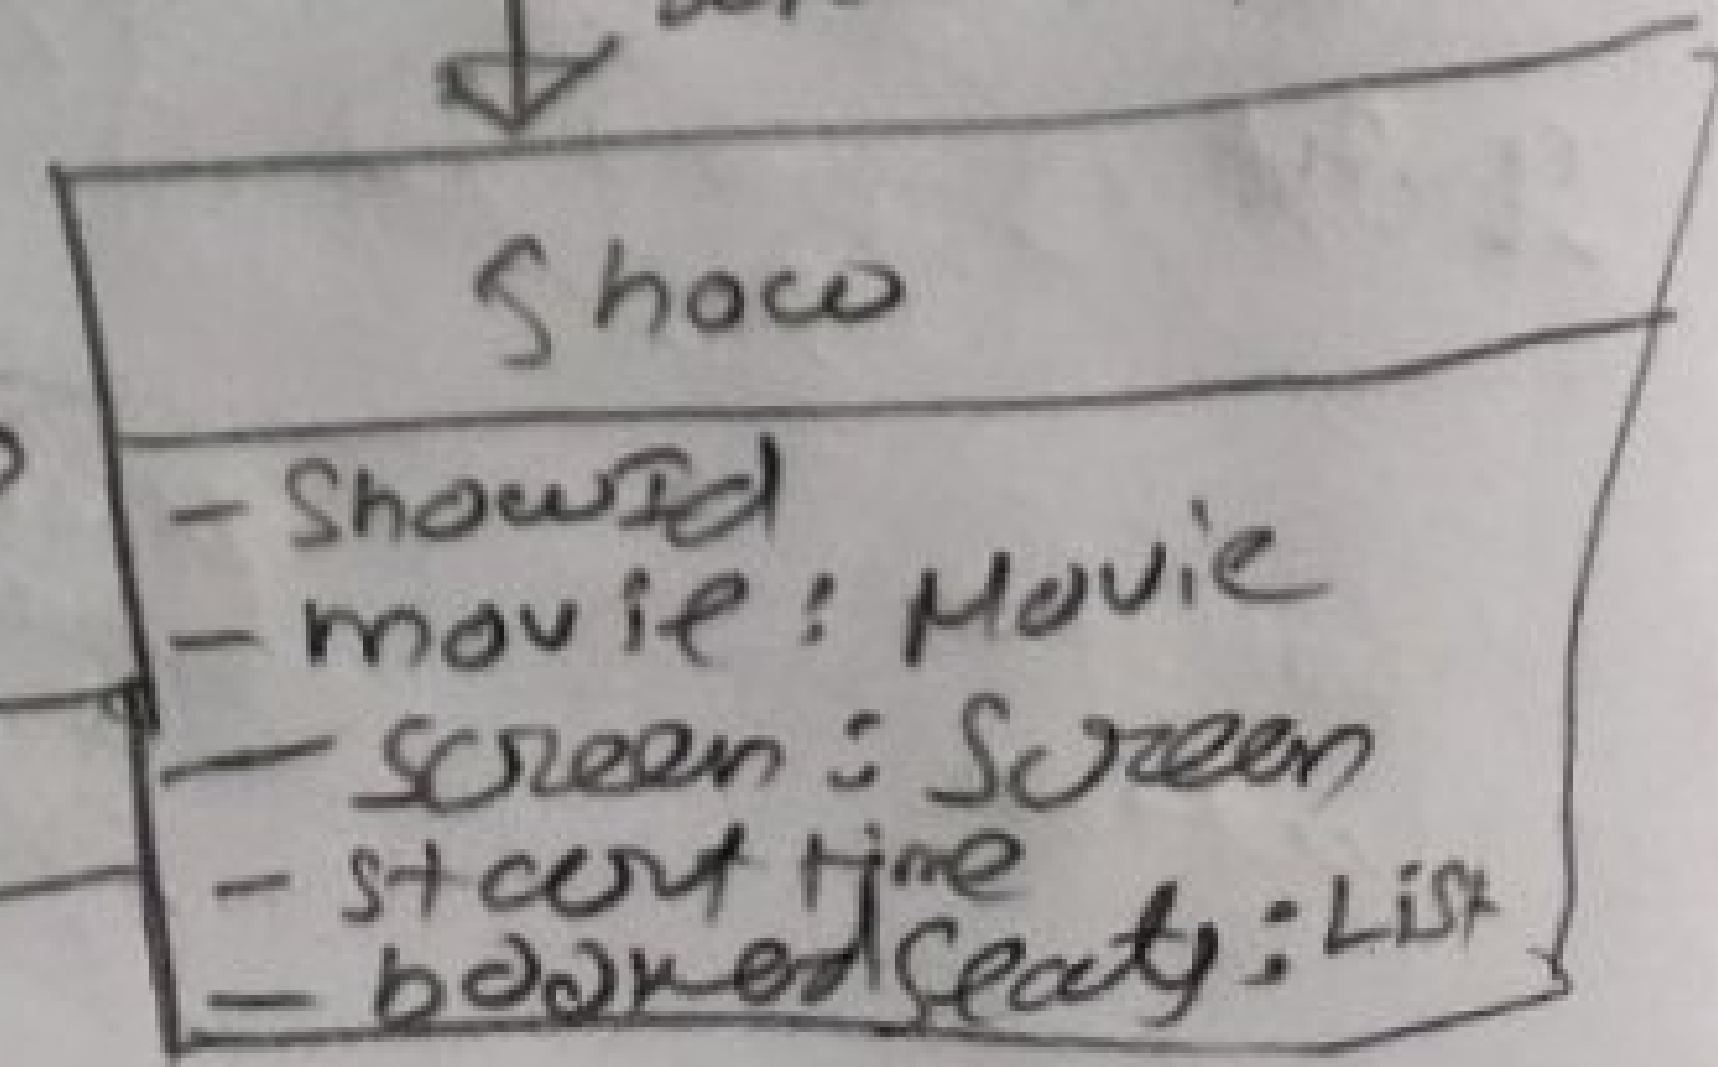 Show
- ShowId
- movie : Movie
- screen : Screen
- start time
- bookedSeats : List